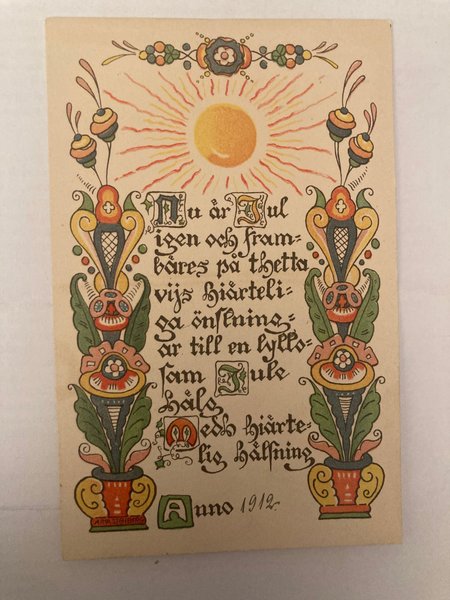 Nu är Jul
igen och fram-
bäres på thetta
vijs hiärteli-
ga önskning-
ar till en lykko-
sam Jule
hälg
Medh hiärte-
lig hälsning
Anno 1912.